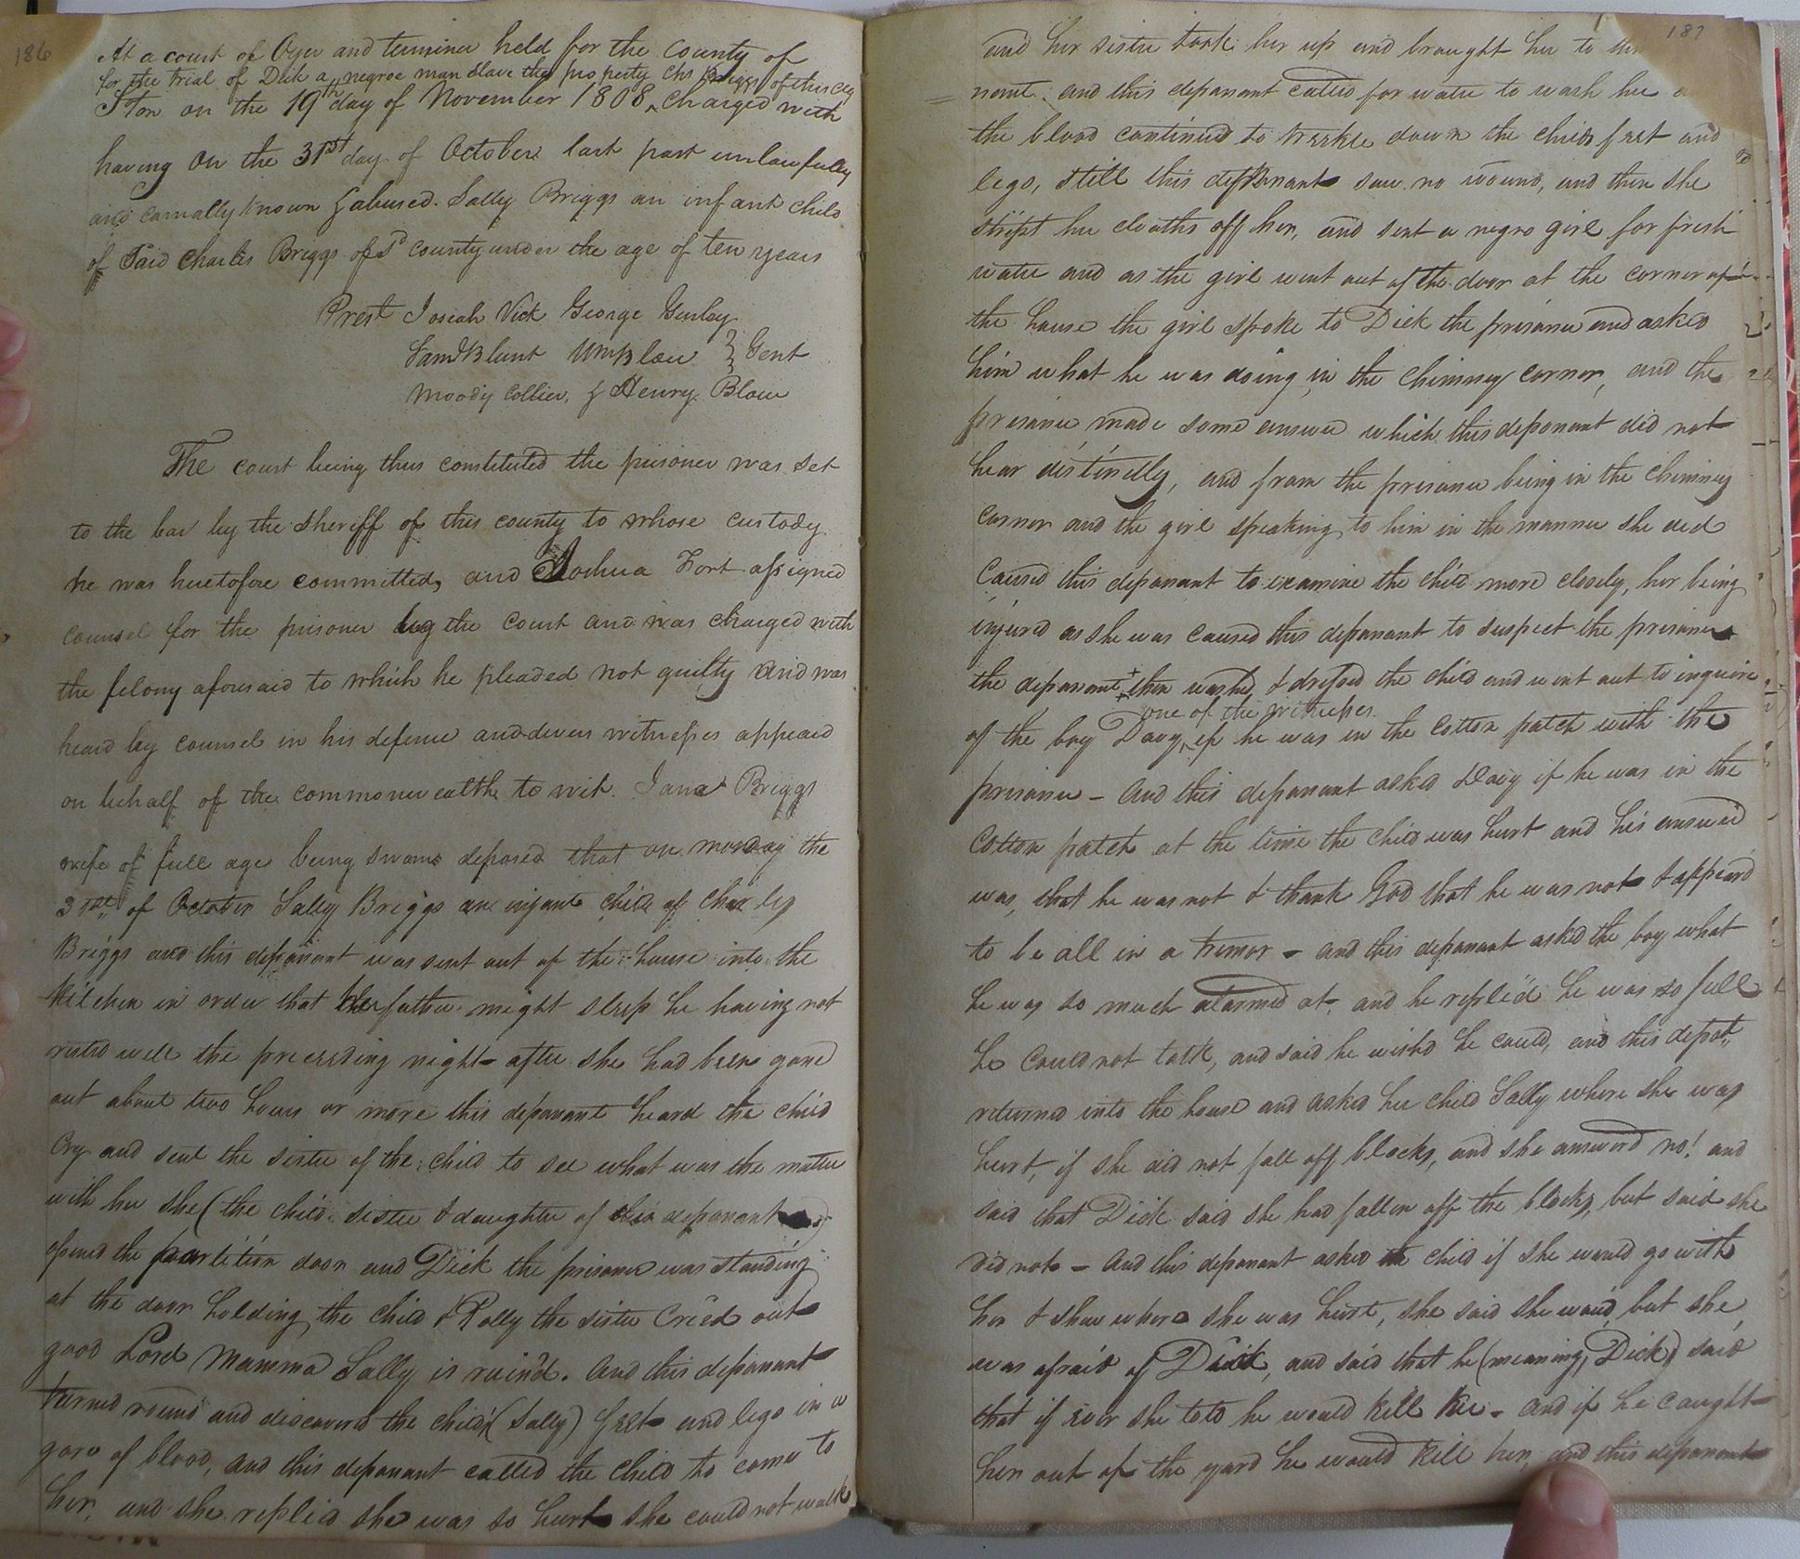 186
At a court of Oyer and terminer held for the County of
for the trial of Dick a negroe man slave the property Chs Briggs of this cty
S'ton on the 19th day of November 1808 charged with
having on the 31st day of October last past unlawfully
and carnally known & abused Sally Briggs an infant child
of said Charles Briggs of sd county under the age of ten years
Prest Josiah Vick George Gurley
Saml Blunt Wm Blow } Gent
Moody Collier, & Henry Blow
The court being thus constituted the prisoner was set
to the bar by the Sheriff of this county to whose custody
he was heretofore committed, and Joshua Fort assigned
counsel for the prisoner by the court and was charged with
the felony aforesaid to which he pleaded not guilty and was
heard by counsel in his defense and divers witnesses appeard
on behalf of the commonwealth to wit. Jana Briggs
wife of full age being sworne deposed that on monday the
31st of October Sally Briggs an infant child of Charles
Briggs and this deponant was sent out of the house into the
kitchen in order that her father might sleep he having not
rested well the preceeding night after she had been gone
out about two hours or more this deponant heard the child
Cry and sent the sister of the child to see what was the matter
with her she (the child's sister & daughter of this deponant)
opened the partition door and Dick the prisoner was standing
at the door holding the child & Polly the sister cried out
good Lord Mamma Sally is ruin'd. And this deponant
turned round and discovered the child (Sally) feet and legs in a
gore of blood, and this deponant called the child to come to
her, and she replied she was so hurt she could not walk
187
and her sister took her up and brought her to
and this deponant called for water to wash her
the blood continued to trickle down the childs feet and
legs, still this deponant saw no wound, and then she
stript her cloaths off her, and sent a negro girl for fresh
water and as the girl went out of the door at the corner of
the house the girl spoke to Dick the prisoner and asked
him what he was doing in the chimney corner, and the
prisoner made some answer which this deponant did not
hear distinctly, and from the prisoner being in the chimney
corner and the girl speaking to him in the manner she did
Caused this deponant to examine the child more closely, her being
injured as she was caused this deponant to suspect the prisoner
the deponant then washed & dressed the child and went out to inquire
one of the witnesses
of the boy Davy, if he was in the cotton patch with the
prisoner - And this deponant asked Davy if he was in the
Cotton patch at the time the child was hurt and his answer
was, that he was not & thank God that he was not & appeard
to be all in a tremor - and this deponant asked the boy what
he was so much alarmed at, and he replied he was so full
he could not talk, and said he wishd he could, and this depot.
returned into the house and asked her child Sally where she was
hurt, if she did not fall off blocks, and she answerd no! and
said that Dick said she had fallen off the blocks, but said she
did not - And this deponant asked the child if she would go with
her & shew where she was hurt, she said she would, but she
was afraid of Dick, and said that he (meaning Dick) said
that if ever she told he would kill her - and if he caught
her out of the yard he would kill her, and this deponant